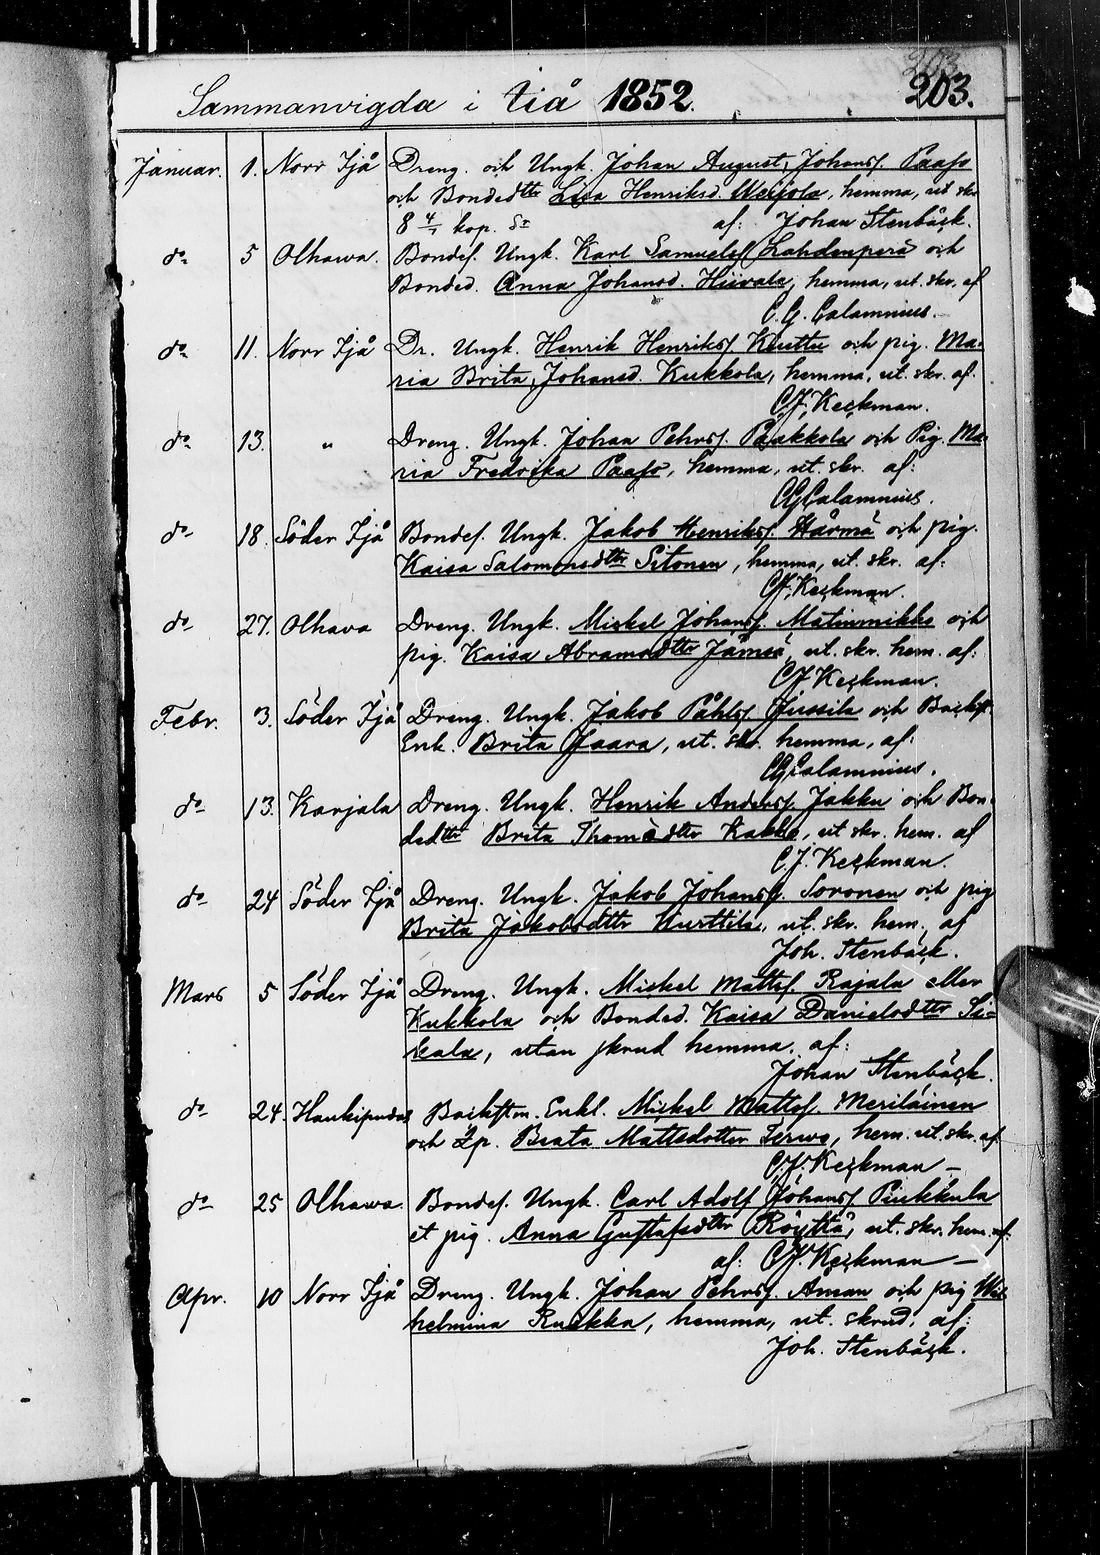 203.
Sammanvigda i Iiå 1852.
Januar. 1. Norr Ijå Dreng. och Ungk. Johan August, Johansf. Paaso
och Bondedttr Lisa Henriksd. Weijola, hemma, ut skr
8 4/7 kop. Sr af: Johan Stenbäck.
do 5 Olhawa. Bondes. Ungk. Karl Samuelsf Lahdenperä och
Bonded. Anna Johansd. Hiivala, hemma, ut. skr. af
C. G. Calamnius.
do 11. Norr Ijå Dr. Ungk. Henrik Henriksf. Knuttu och pig. Ma-
ria Brita, Johansd. Kukkola, hemma, ut. skr. af.
C. J. Keckman.
do 13. " Dreng. Ungk. Johan Pehrsf. Paakkola och Pig. Ma-
ria Fredrika Paaso, hemma, ut. skr. af:
CGCalamnius.
do 18. Söder Ijå Bondes. Ungk. Jakob Henriksf. Härmä och pig.
Kaisa Salomonsdttr Sitonen, hemma, ut. skr. af:
CJ. Keckman.
do 27. Olhava Dreng. Ungk. Mickel Johansf. Matinmikko och
pig. Kaisa Abramsdttr Jämsä, ut. skr. hem. af:
CJ Keckman.
Febr. 3. Söder Ijå Dreng. Ungk. Jakob Påhlsf. Jussila och Backst.
Enk. Brita Jaara, ut. skr. hemma, af:
CGCalamnius.
do 13. Karjala Dreng. Ungk. Henrik Andersf. Jakku och Bon-
dedttr Brita Thomædttr Kakko, ut skr. hem. af
C. J. Keckman.
do 24 Söder Ijå Dreng. Ungk. Jakob Johansf. Soronen och pig
Brita Jakobsdttr Kurttila, ut. skr. hem., af
Joh. Stenbäck.
Mars 5 Söder Ijå Dreng. Ungk. Mickel Mattsf. Rajala eller
Kukkola och Bonded. Kaisa Danielsdttr Si-
kala, utan skrud hemma. af:
Johan Stenbäck.
do 24. Haukipudas Backstm. Enkl. Mickel Mattsf. Meriläinen
och Lp. Beata Mattsdotter Serwo, hem. ut. skr. af:
C. J. Keckman –
do 25 Olhawa. Bondes. Ungk. Carl Adolf Johansf Piukkula
et pig. Anna Gustafsdttr Röyttä, ut. skr. hem. af:
af: CJ. Keckman –
Apr. 10 Norr Ijå Dreng. Ungk. Johan Pehrsf. Aman och pig Wil-
helmina Ruokka, hemma, ut. skrud. af:
Joh. Stenbäck.